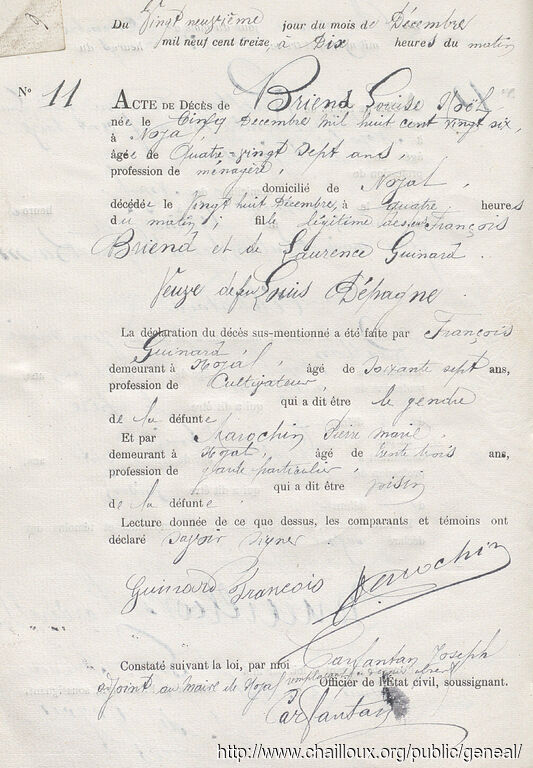 Du Vingt neuvième jour du mois de Décembre
mil neuf cent treize, à Dix heures du matin
N° 11
ACTE DE DÉCÈS de Briend Louise Noël
née le Cinq Décembre mil huit cent vingt six,
à Noyal
âgée de Quatre-vingt sept ans,
profession de ménagère,
domicilié de Noyal,
décédée le vingt huit Décembre, à quatre heures
du matin; fille légitime des feus François
Briend et de Laurence Guinard
Veuve de feu Louis Dépagne
La déclaration du décès sus-mentionné a été faite par François
Guinard,
demeurant à Noyal, âgé de soixante sept ans,
profession de Cultivateur,
qui a dit être le gendre
de la défunte
Et par Marochin Pierre Marie,
demeurant à Noyal, âgé de trente trois ans,
profession de garde particulier,
qui a dit être voisin
de la défunte
Lecture donnée de ce que dessus, les comparants et témoins ont
déclaré savoir signer
Guinard François Marochin
Constaté suivant la loi, par moi Carfantan Joseph
adjoint au Maire de Noyal remplaçant
Officier de l'État civil, soussigné.
Carfantan
http://www.chailloux.org/public/geneal/